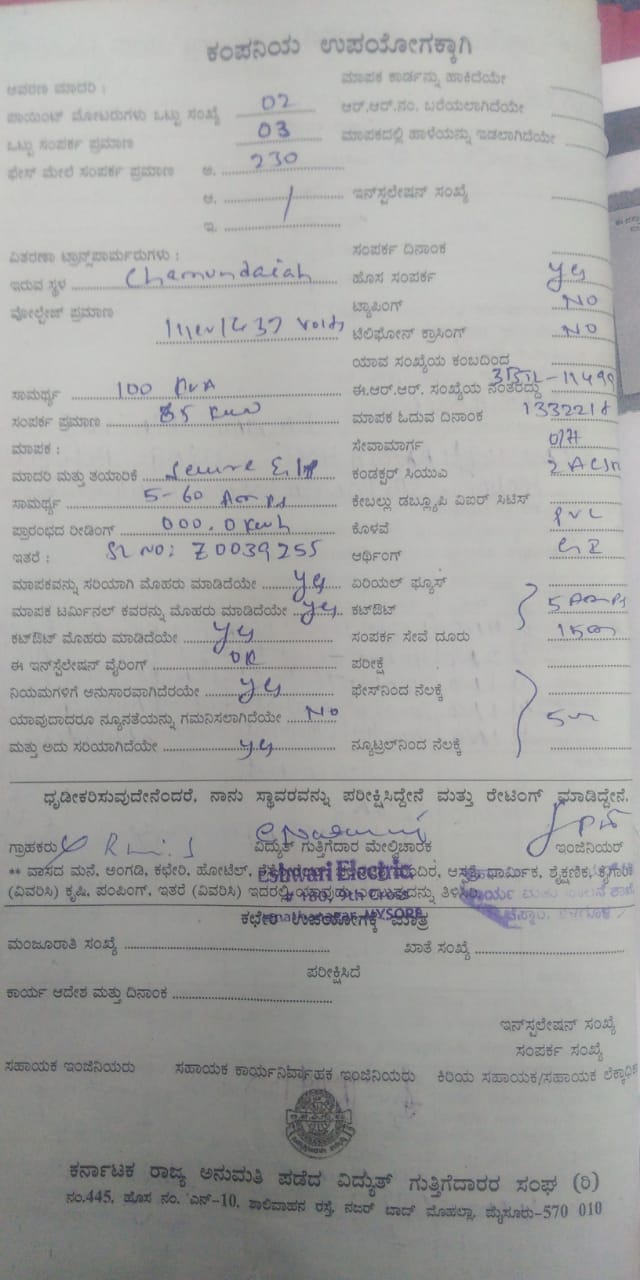 ಕಂಪನಿಯ ಉಪಯೋಗಕ್ಕಾಗಿ
ಆವರಣ ಮಾದರಿ :
ಮಾಪಕ ಕಾರ್ಡನ್ನು ಹಾಕಿದೆಯೇ
ಪಾಯಿಂಟ್ ಮೋಟರುಗಳು ಒಟ್ಟು ಸಂಖ್ಯೆ 02
ಆರ್.ಆರ್.ನಂ. ಬರೆಯಲಾಗಿದೆಯೇ
ಒಟ್ಟು ಸಂಪರ್ಕ ಪ್ರಮಾಣ 03
ಮಾಪಕದಲ್ಲಿ ಹಾಳೆಯನ್ನು ಇಡಲಾಗಿದೆಯೇ
ಫೇಸ್ ಮೇಲೆ ಸಂಪರ್ಕ ಪ್ರಮಾಣ ಅ. 230
ಆ.
ಇನ್‌ಸ್ಟಲೇಷನ್ ಸಂಖ್ಯೆ
ಇ.
ವಿತರಣಾ ಟ್ರಾನ್ಸ್‌ಫಾರ್ಮರುಗಳು :
ಸಂಪರ್ಕ ದಿನಾಂಕ
ಇರುವ ಸ್ಥಳ Chamundaiah
ಹೊಸ ಸಂಪರ್ಕ yes
ವೋಲ್ಟೇಜ್ ಪ್ರಮಾಣ
ಟ್ಯಾಪಿಂಗ್ NO
ಟೆಲಿಫೋನ್ ಕ್ರಾಸಿಂಗ್ NO
ಯಾವ ಸಂಖ್ಯೆಯ ಕಂಬದಿಂದ
ಸಾಮರ್ಥ್ಯ 100 KVA
ಈ.ಆರ್.ಆರ್. ಸಂಖ್ಯೆಯ ನಂತರದ್ದು
ಸಂಪರ್ಕ ಪ್ರಮಾಣ 85 KW
ಮಾಪಕ ಓದುವ ದಿನಾಂಕ
ಮಾಪಕ :
ಸೇವಾಮಾರ್ಗ O/H
ಮಾದರಿ ಮತ್ತು ತಯಾರಿಕೆ Secure
ಕಂಡಕ್ಟರ್ ಸಿಯುಎ
ಸಾಮರ್ಥ್ಯ 5-60 Amps
ಕೇಬಲ್ಲು ಡಬ್ಲ್ಯೂಪಿ ವಿಐರ್ ಸಿಟಿಸ್
ಪ್ರಾರಂಭದ ರೀಡಿಂಗ್ 000.0 Kwh
ಕೊಳವೆ PVC
ಇತರೆ : Sl NO: Z0039255
ಆರ್ಥಿಂಗ್ G I
ಮಾಪಕವನ್ನು ಸರಿಯಾಗಿ ಮೊಹರು ಮಾಡಿದೆಯೇ yes
ಏರಿಯಲ್ ಫ್ಯೂಸ್
ಮಾಪಕ ಟರ್ಮಿನಲ್ ಕವರನ್ನು ಮೊಹರು ಮಾಡಿದೆಯೇ yes
ಕಟ್‌ಔಟ್ 5 Amps
ಕಟ್‌ಔಟ್ ಮೊಹರು ಮಾಡಿದೆಯೇ yes
ಸಂಪರ್ಕ ಸೇವೆ ದೂರು 15m
ಈ ಇನ್‌ಸ್ಟಲೇಷನ್ ವೈರಿಂಗ್ OK
ಪರೀಕ್ಷೆ
ನಿಯಮಗಳಿಗೆ ಅನುಸಾರವಾಗಿದೆರಯೇ yes
ಫೇಸ್‌ನಿಂದ ನೆಲಕ್ಕೆ
ಯಾವುದಾದರೂ ನ್ಯೂನತೆಯನ್ನು ಗಮನಿಸಲಾಗಿದೆಯೇ No
ಮತ್ತು ಅದು ಸರಿಯಾಗಿದೆಯೇ yes
ನ್ಯೂಟ್ರಲ್‌ನಿಂದ ನೆಲಕ್ಕೆ
ಧೃಡೀಕರಿಸುವುದೇನೆಂದರೆ, ನಾನು ಸ್ಥಾವರವನ್ನು ಪರೀಕ್ಷಿಸಿದ್ದೇನೆ ಮತ್ತು ರೇಟಿಂಗ್ ಮಾಡಿದ್ದೇನೆ.
ಗ್ರಾಹಕರು ವಿದ್ಯುತ್ ಗುತ್ತಿಗೆದಾರ ಮೇಲ್ವಿಚಾರಕ ಇಂಜಿನಿಯರ್
** ವಾಸದ ಮನೆ, ಅಂಗಡಿ, ಕಛೇರಿ, ಹೋಟೆಲ್, ಆಸ್ಪತ್ರೆ, ಧಾರ್ಮಿಕ, ಶೈಕ್ಷಣಿಕ, ಕೈಗಾರಿಕೆ
Eshwari Electric
(ವಿವರಿಸಿ) ಕೃಷಿ, ಪಂಪಿಂಗ್, ಇತರೆ (ವಿವರಿಸಿ) ಇದರಲ್ಲಿ ಯಾವುದು
# 180, 9th Cross
MYSORE
ಕಛೇರಿ ಉಪಯೋಗಕ್ಕೆ ಮಾತ್ರ
ಮಂಜೂರಾತಿ ಸಂಖ್ಯೆ ಖಾತೆ ಸಂಖ್ಯೆ
ಪರೀಕ್ಷಿಸಿದೆ
ಕಾರ್ಯ ಆದೇಶ ಮತ್ತು ದಿನಾಂಕ
ಇನ್‌ಸ್ಟಲೇಷನ್ ಸಂಖ್ಯೆ
ಸಂಪರ್ಕ ಸಂಖ್ಯೆ
ಸಹಾಯಕ ಇಂಜಿನಿಯರು ಸಹಾಯಕ ಕಾರ್ಯನಿರ್ವಾಹಕ ಇಂಜಿನಿಯರು ಕಿರಿಯ ಸಹಾಯಕ/ಸಹಾಯಕ
ಕರ್ನಾಟಕ ರಾಜ್ಯ ಅನುಮತಿ ಪಡೆದ ವಿದ್ಯುತ್ ಗುತ್ತಿಗೆದಾರರ ಸಂಘ (ರಿ)
ನಂ.445, ಹೊಸ ನಂ. ಎನ್-10, ಶಾಲಿವಾಹನ ರಸ್ತೆ, ನಜರ್ ಬಾದ್ ಮೊಹಲ್ಲಾ, ಮೈಸೂರು-570 010